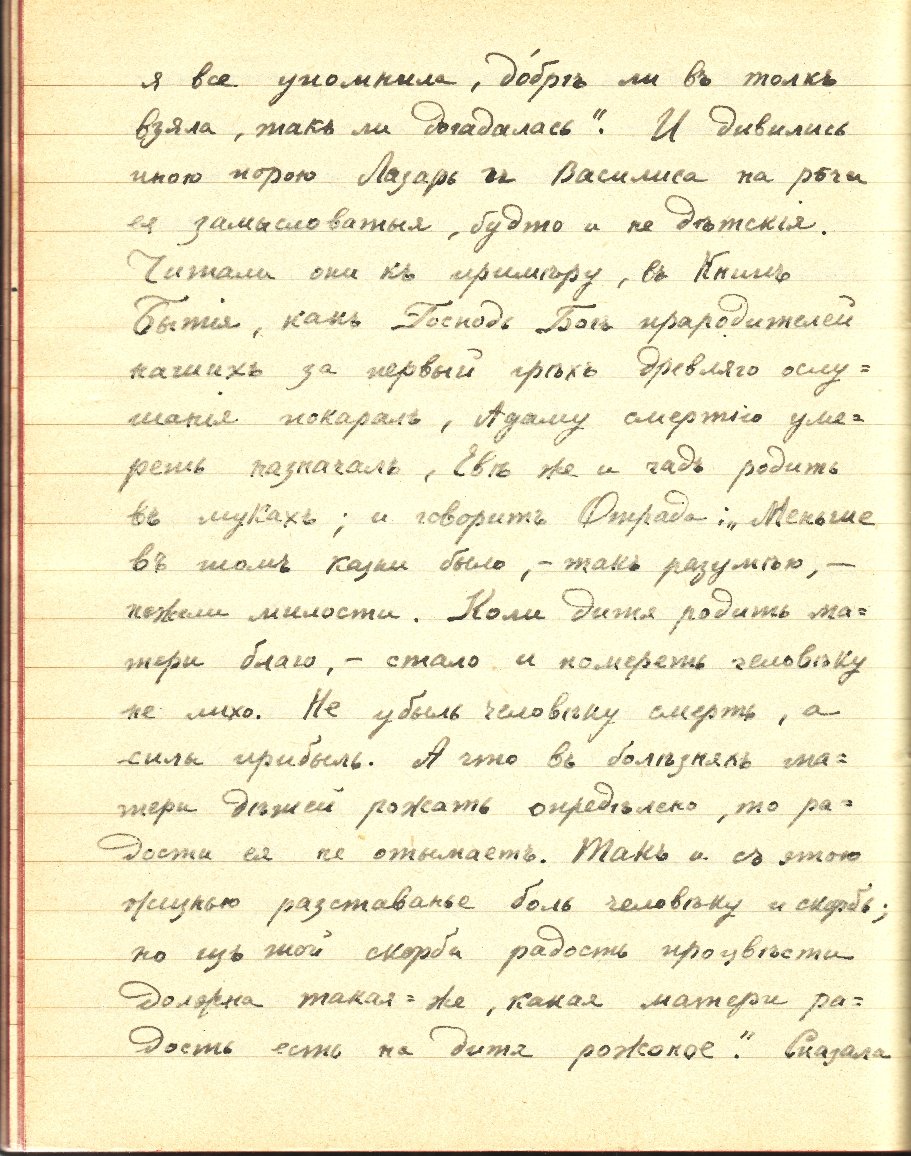 я все упомнила, до́брѣ ли въ толкъ
взяла, такъ ли догадалась". И дивились
иною порою Лазарь и Василиса на рѣчи
ея замысловатыя, будто и не дѣтскія.
Читали они къ примѣру, въ Книгѣ
Бытія, какъ Господь Богъ прародителей
нашихъ за первый грѣхъ древляго ослу=
шанія покаралъ, Адаму смертію уме=
реть назначалъ, Евѣ же и чадъ родить
въ мукахъ; и говоритъ Отрада: „Меньше
въ томъ казни было, – такъ разумѣю, –
нежели милости. Коли дитя родить ма=
тери благо, – стало и помереть человѣку
не лихо. Не убыль человѣку смерть, а
силы прибыль. А что въ болѣзняхъ ма=
тери дѣтей рожать опредѣлено, то ра=
дости ея не отымаетъ. Такъ и съ этою
жизнью разставанье боль человѣку и скорбь;
но изъ той скорби радость процвѣсти
должна такая=же, какая матери ра=
дость есть на дитя рожоное". Сказала